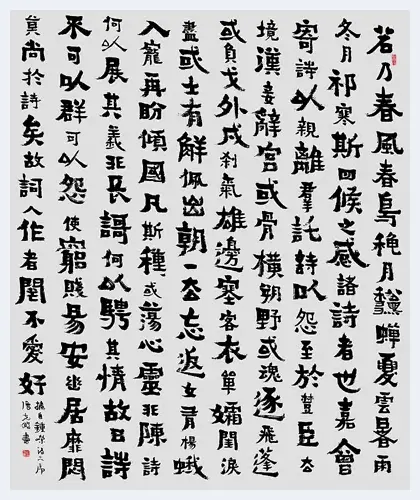 若乃春風春鳥穐月龝蟬夏雲暑雨
冬月祁寒斯四候之感諸詩者也嘉會
寄詩以親離羣託詩以怨至於楚臣去
境漢妾辭宮或骨橫朔野或魂逐飛蓬
或負戈外戍刹氣雄邊塞客衣單孀閨淚
盡或士有解佩出朝一去忘返女有楊蛾
入寵再盼傾國凡斯種或蕩心靈非陳詩
何以展其義非長謌何以騁其情故曰詩
來可以群可以怨使窮賤易安幽居靡悶
莫尚於詩矣故詞人作者罔不愛好
摘自鍾嶸詩品序